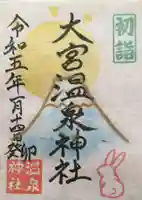 初詣
大宮温泉神社
令和五年一月十四日癸卯
温泉神社